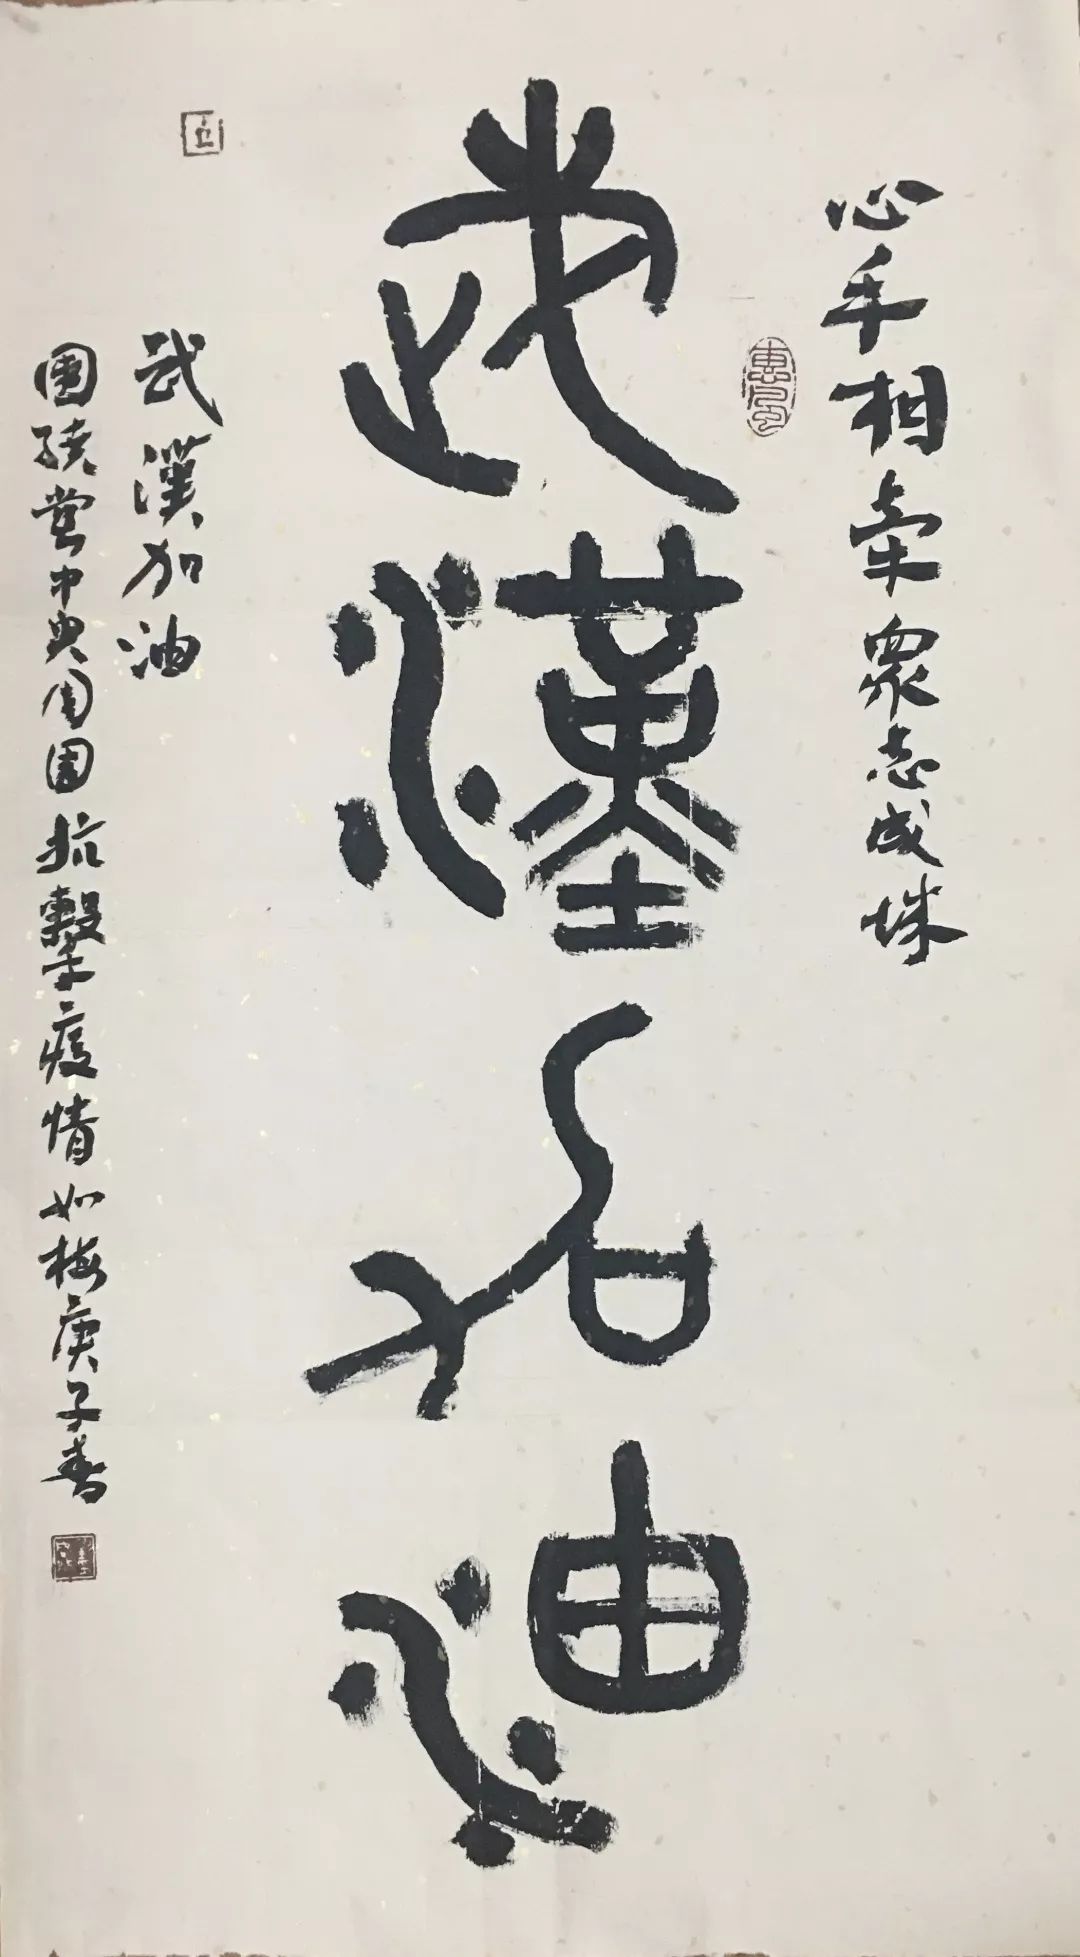 心手相牵衆志成城
武漢加油
武漢加油
團繞党中央周圍抗擊疫情如梅庚子春